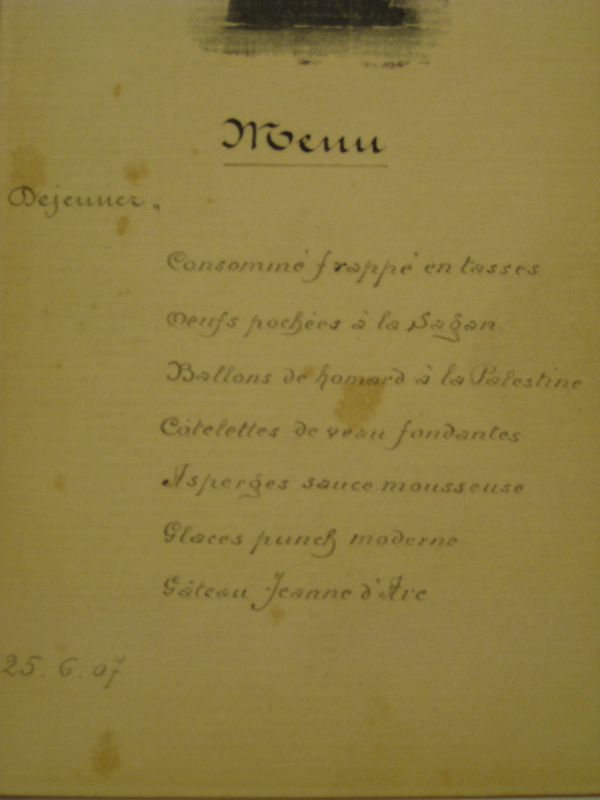 Menu
Dejeuner.
Consommé frappé en tasses
Oeufs pochées à la Sagan
Ballons de homard à la Palestine
Côtelettes de veau fondantes
Asperges sauce mousseuse
Glaces punch moderne
Gâteau Jeanne d'Arc
25. 6. 07